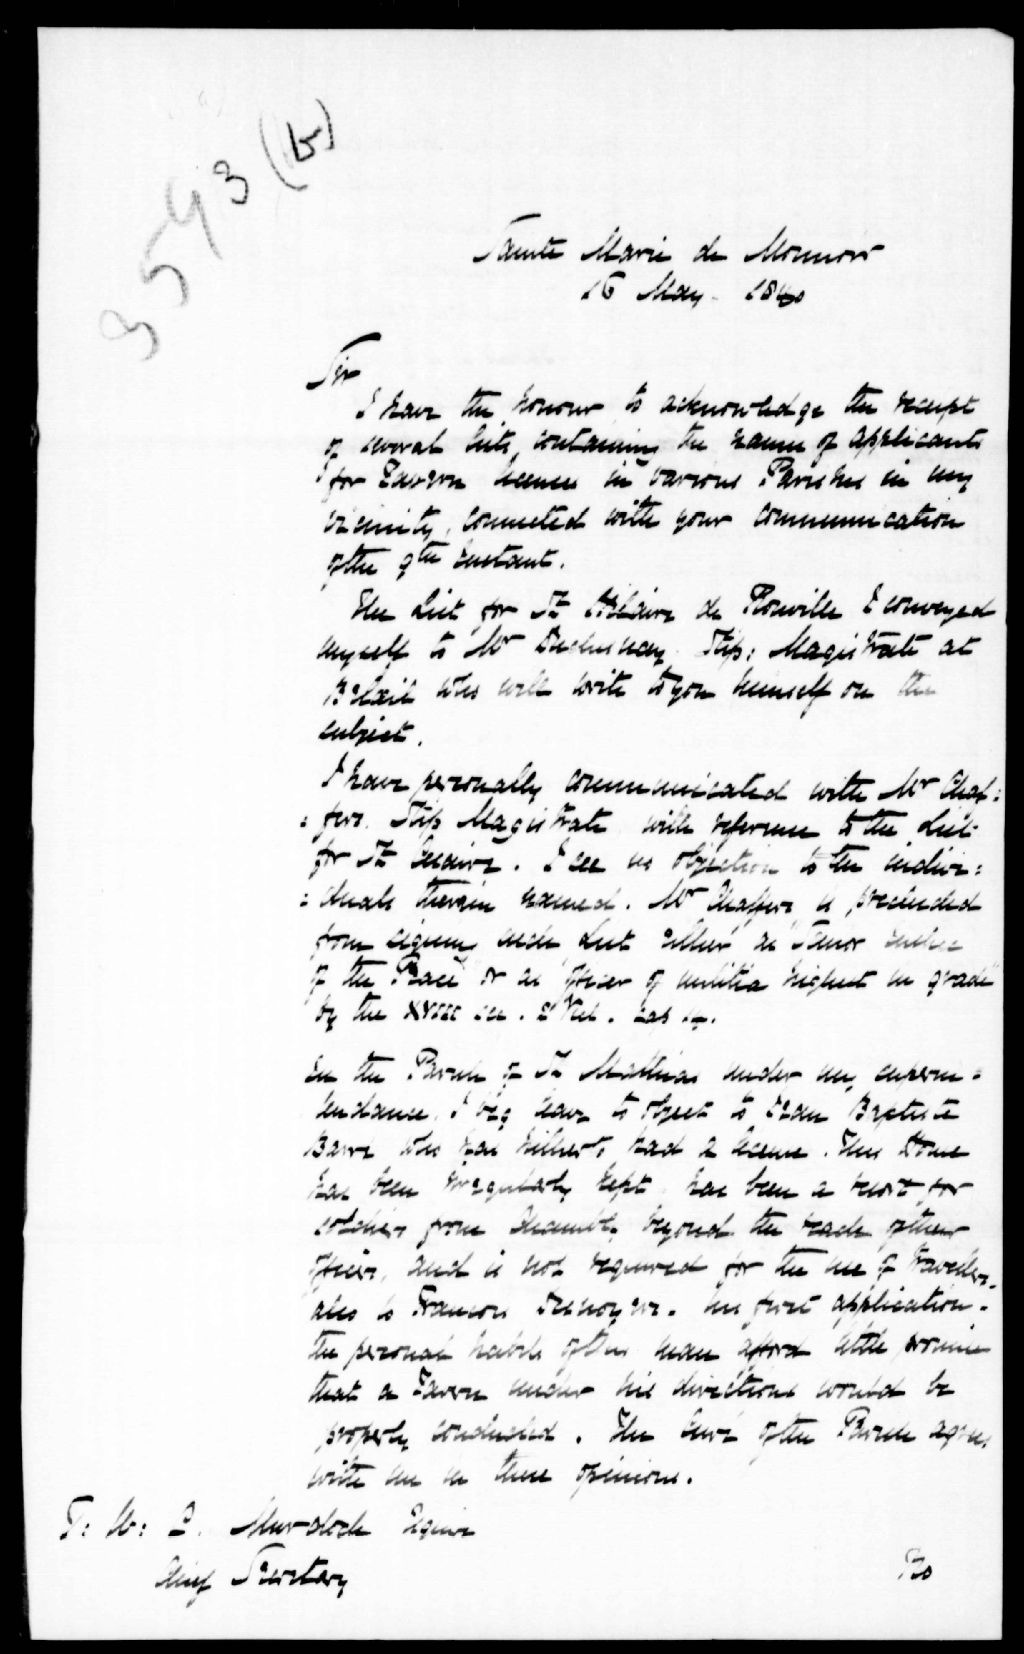 3593 (b)
Sainte Marie de Monnoir
16 May. 1840
Sir
I have the honour to acknowledge the receipt
of several lists, containing the names of applicants
for Tavern licenses in various Parishes in my
vicinity, connected with your communication
of the 9th Instant.
The List for St Hilaire de Rouville I conveyed
myself to Mr Duchesnay Stip: Magistrate at
Belœil who will write to you himself on the
subject.
I have personally communicated with Mr Chaf=
=fers. Stip Magistrate with reference to the List
for St Cesaire. I see no objection to the indivi=
=duals therein named. Mr Chaffers is precluded
from signing such List either as "Senior Justice
of the Peace" or as "officer of militia highest in grade"
by the XVIII sec. 2 Vict. cap 14.
In the Parish of St Mathias under my superin=
tendance. I beg leave to object to Jean Baptiste
Barré who has hitherto had a license. This House
has been irregularly kept has been a resort for
soldiers from Chambly beyond the reach of their
officers, and is not required for the use of travellers.
also to Francois his first application.
the personal habits of this man afford little promise
that a Tavern under his directions would be
properly conducted. The Curé of the Parish agrees
with me in these opinions.
T: W: C. Murdoch Esquire
Chief Secretary